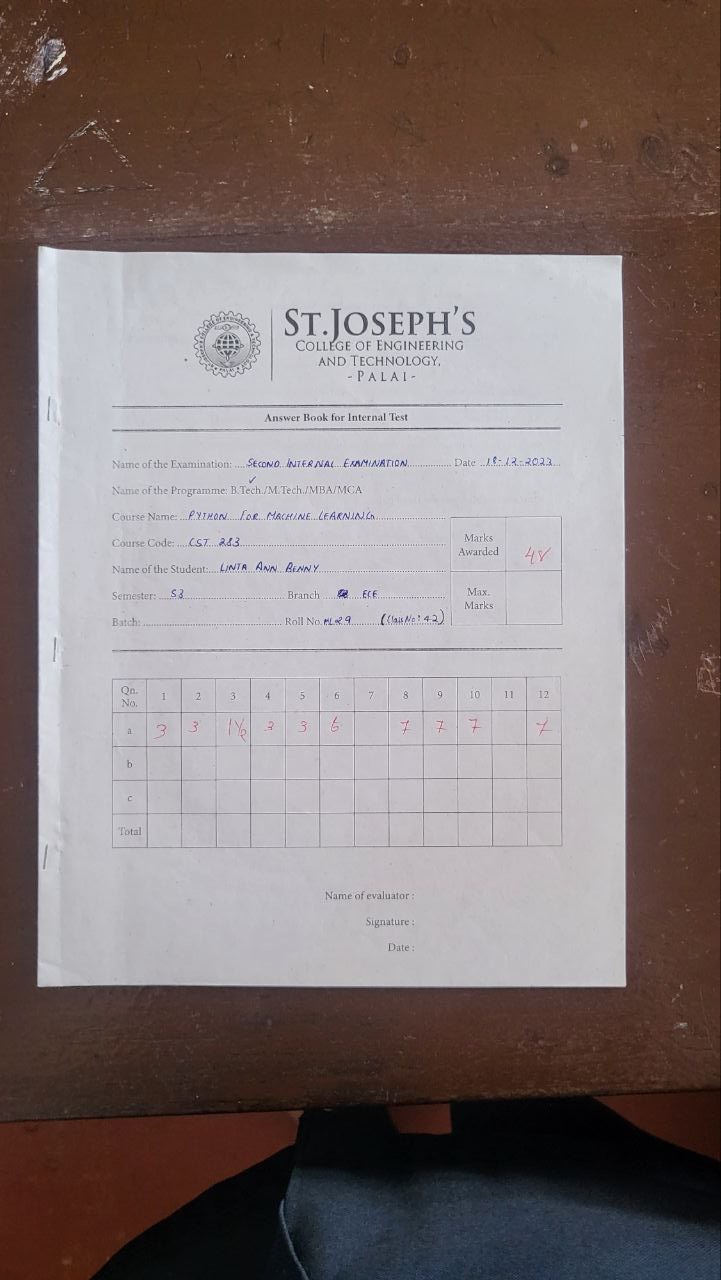 ST.JOSEPH'S
COLLEGE OF ENGINEERING
AND TECHNOLOGY,
- PALAI -
Answer Book for Internal Test
Name of the Examination: SECOND INTERNAL EXAMINATION Date 18-12-2023
Name of the Programme: B.Tech./M.Tech./MBA/MCA
Course Name: PYTHON FOR MACHINE LEARNING
Course Code: CST 283
Marks Awarded 48
Name of the Student: LINTA ANN BENNY
Semester: S3 Branch ECE
Max. Marks
Batch: Roll No. ML29 (Class No: 42)
Qn. No. 1 2 3 4 5 6 7 8 9 10 11 12
a 3 3 1½ 3 3 6 7 7 7 7
b
c
Total
Name of evaluator :
Signature :
Date :